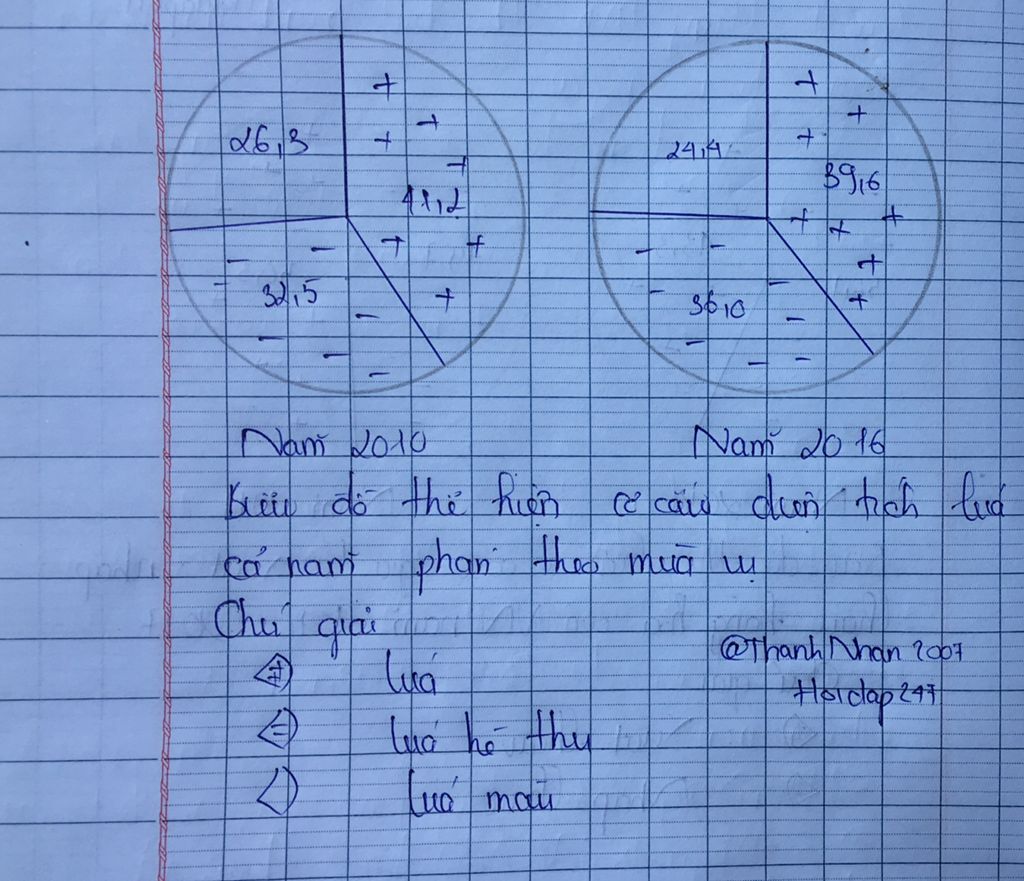 26,3
41,2
32,5
24,4
39,6
36,0
Năm 2010
Năm 2016
Biểu đồ thể hiện cơ cấu diện tích lúa
cả năm phân theo mùa vụ
Chú giải
lúa
lúa hè thu
lúa mùa
@ThanhNhan2007
Hoidap247